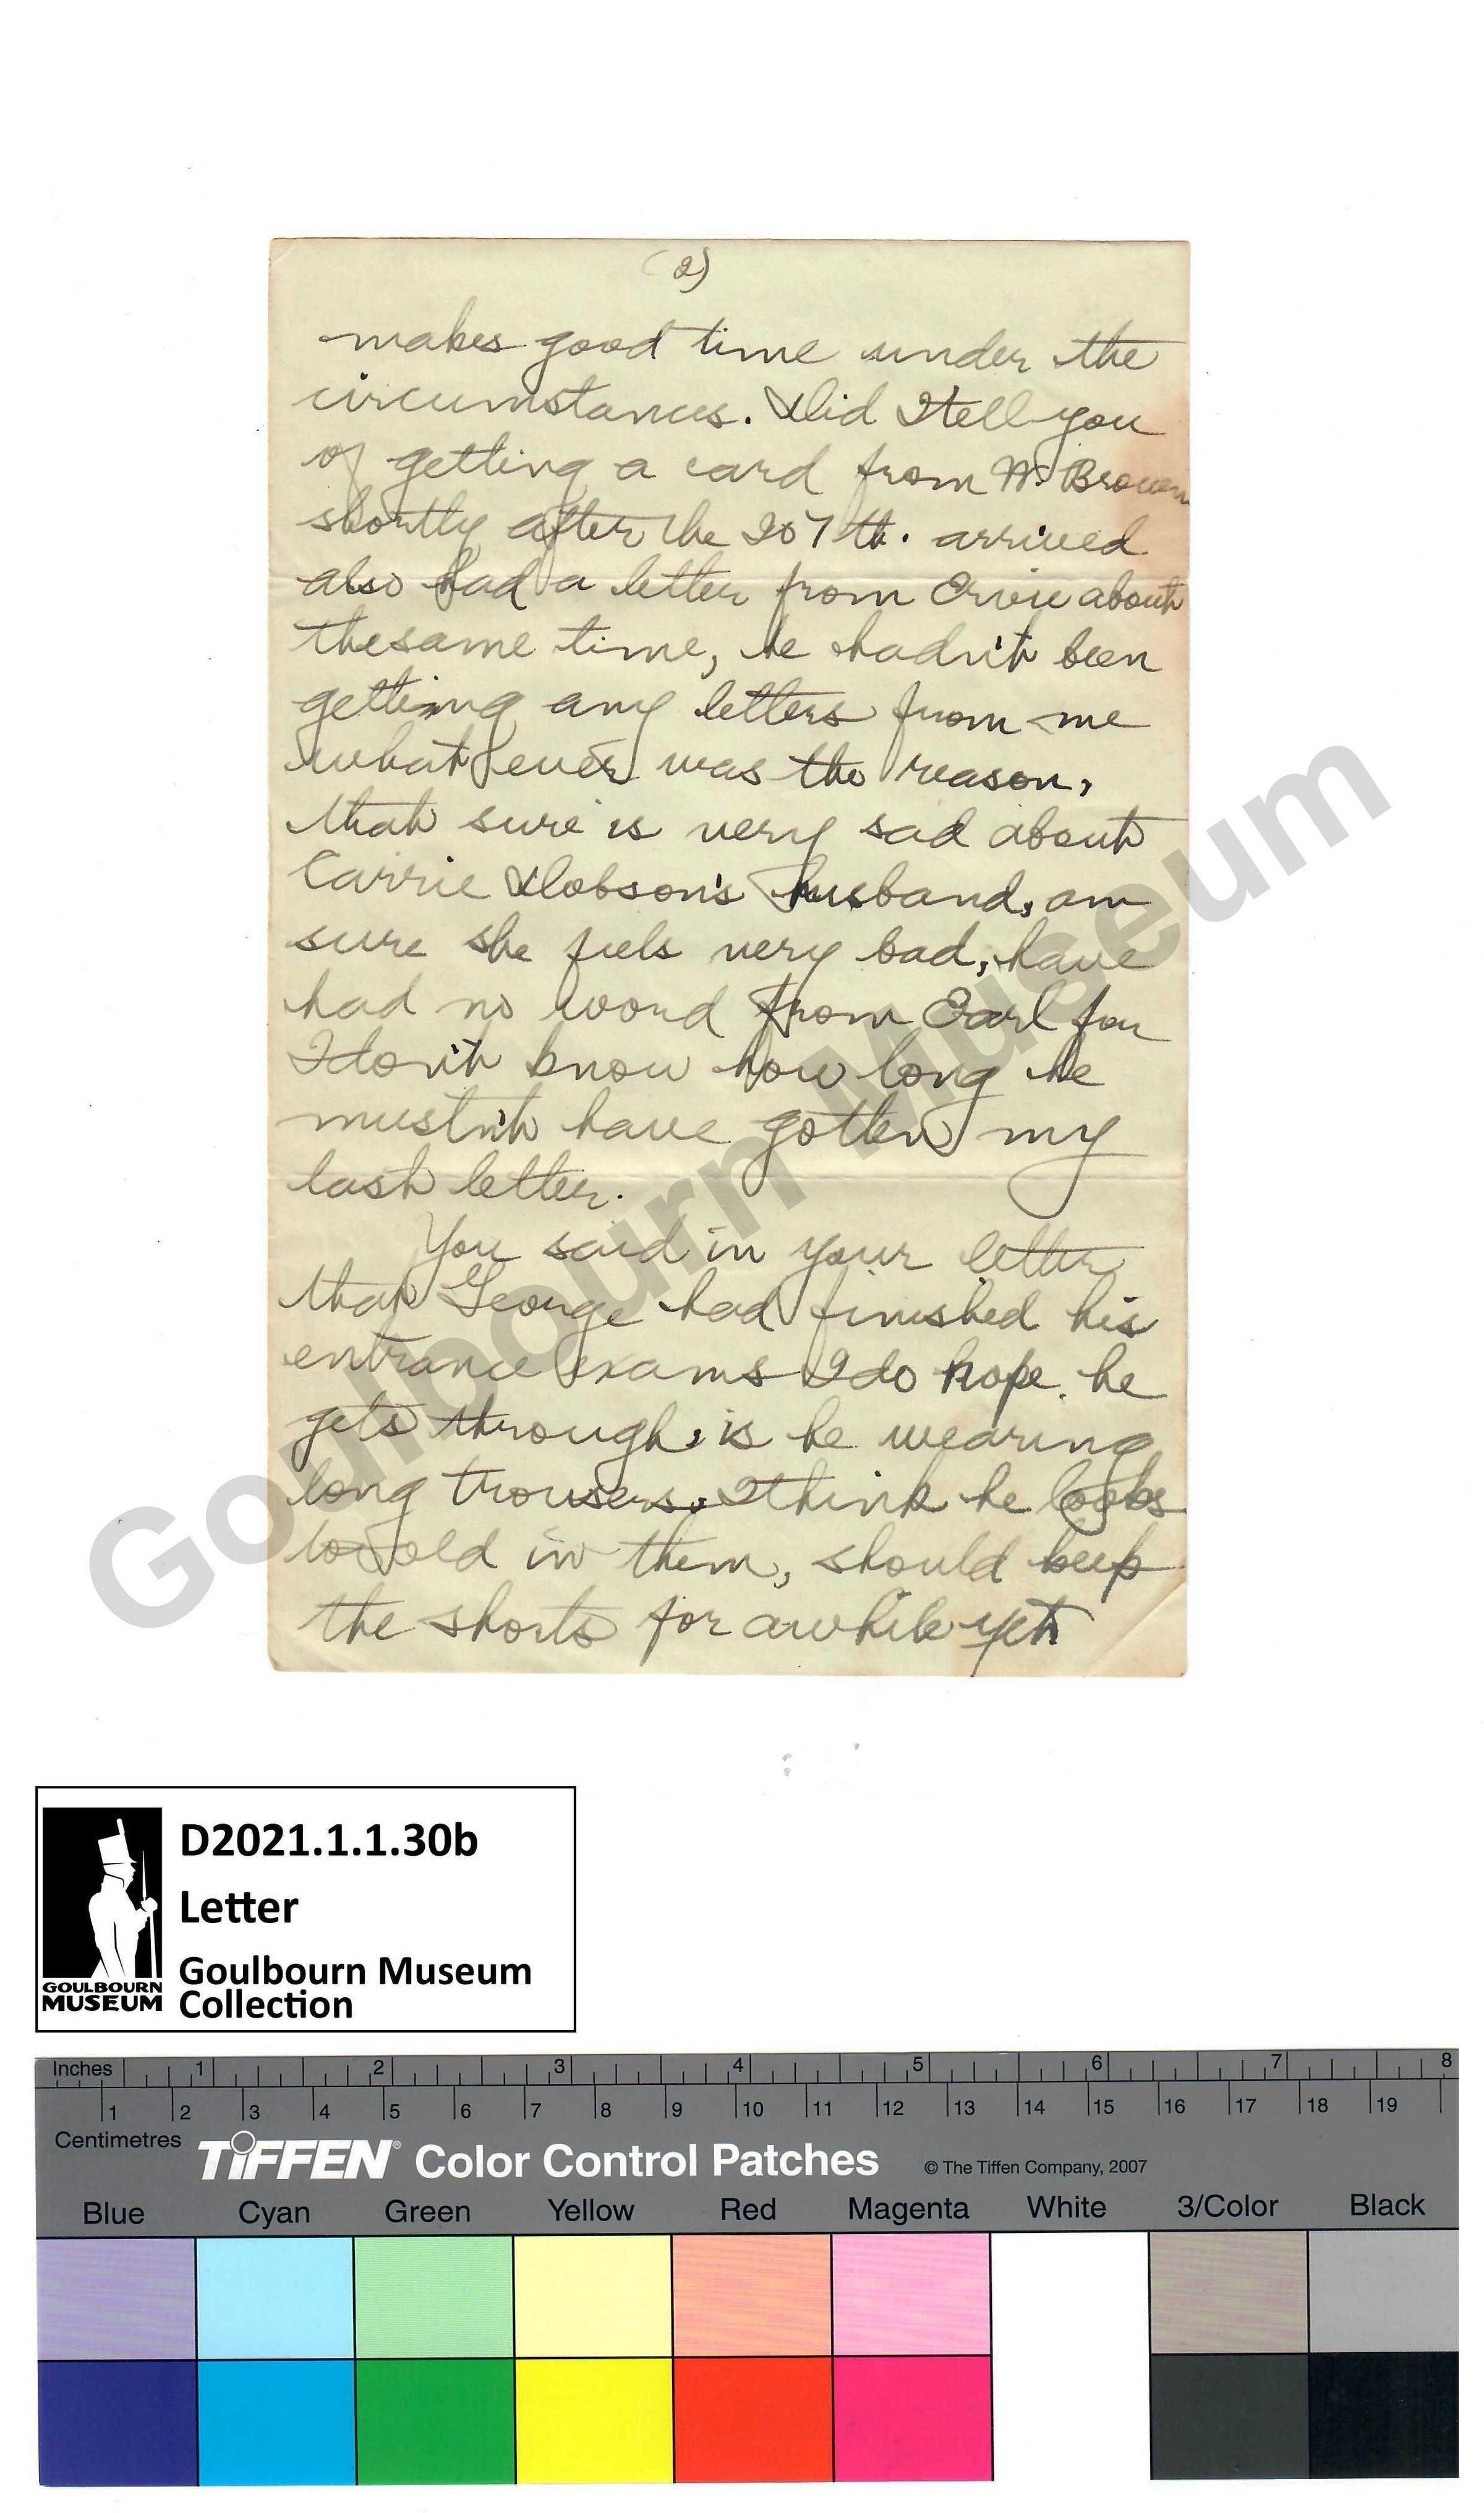 (2)
makes good time under the
circumstances. Did I tell you
of getting a card from W. Brown
shortly after the 207th. arrived
also had a letter from Ervie about
thesame time, he hadn't been
getting any letters from me
what ever was the reason,
that sure is very sad about
Carrie Dobson's husband, am
sure she feels very bad, have
had no word from Earl for
I don't know how long he
mustn't have gotten my
last letter.
You said in your letter
that George had finished his
entrance exams I do hope he
gets through, is he wearing
long trousers. I think he looks
to old in them, should keep
the shorts for awhile yet
Goulbourn Museum
D2021.1.1.30b
Letter
Goulbourn Museum
Collection
GOULBOURN
MUSEUM
Inches 1 2 3 4 5 6 7 8
1 2 3 4 5 6 7 8 9 10 11 12 13 14 15 16 17 18 19
Centimetres
TIFFEN® Color Control Patches © The Tiffen Company, 2007
Blue Cyan Green Yellow Red Magenta White 3/Color Black